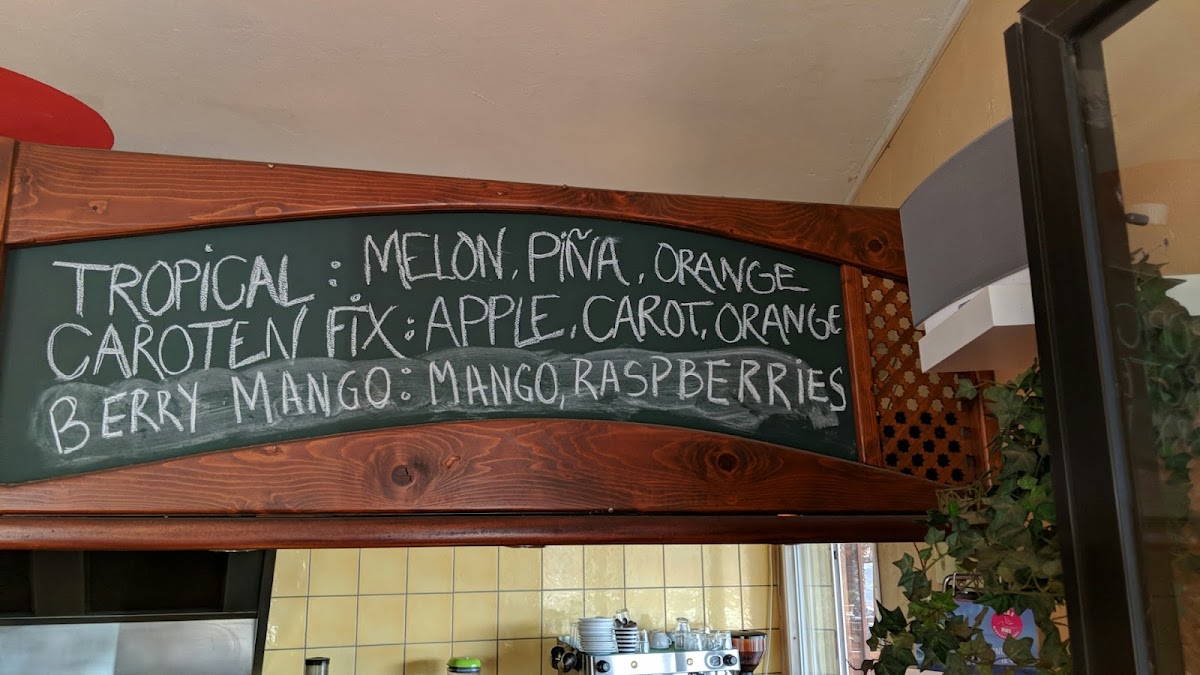 TROPICAL: MELON, PIÑA, ORANGE
CAROTEN FIX: APPLE, CAROT, ORANGE
BERRY MANGO: MANGO, RASPBERRIES